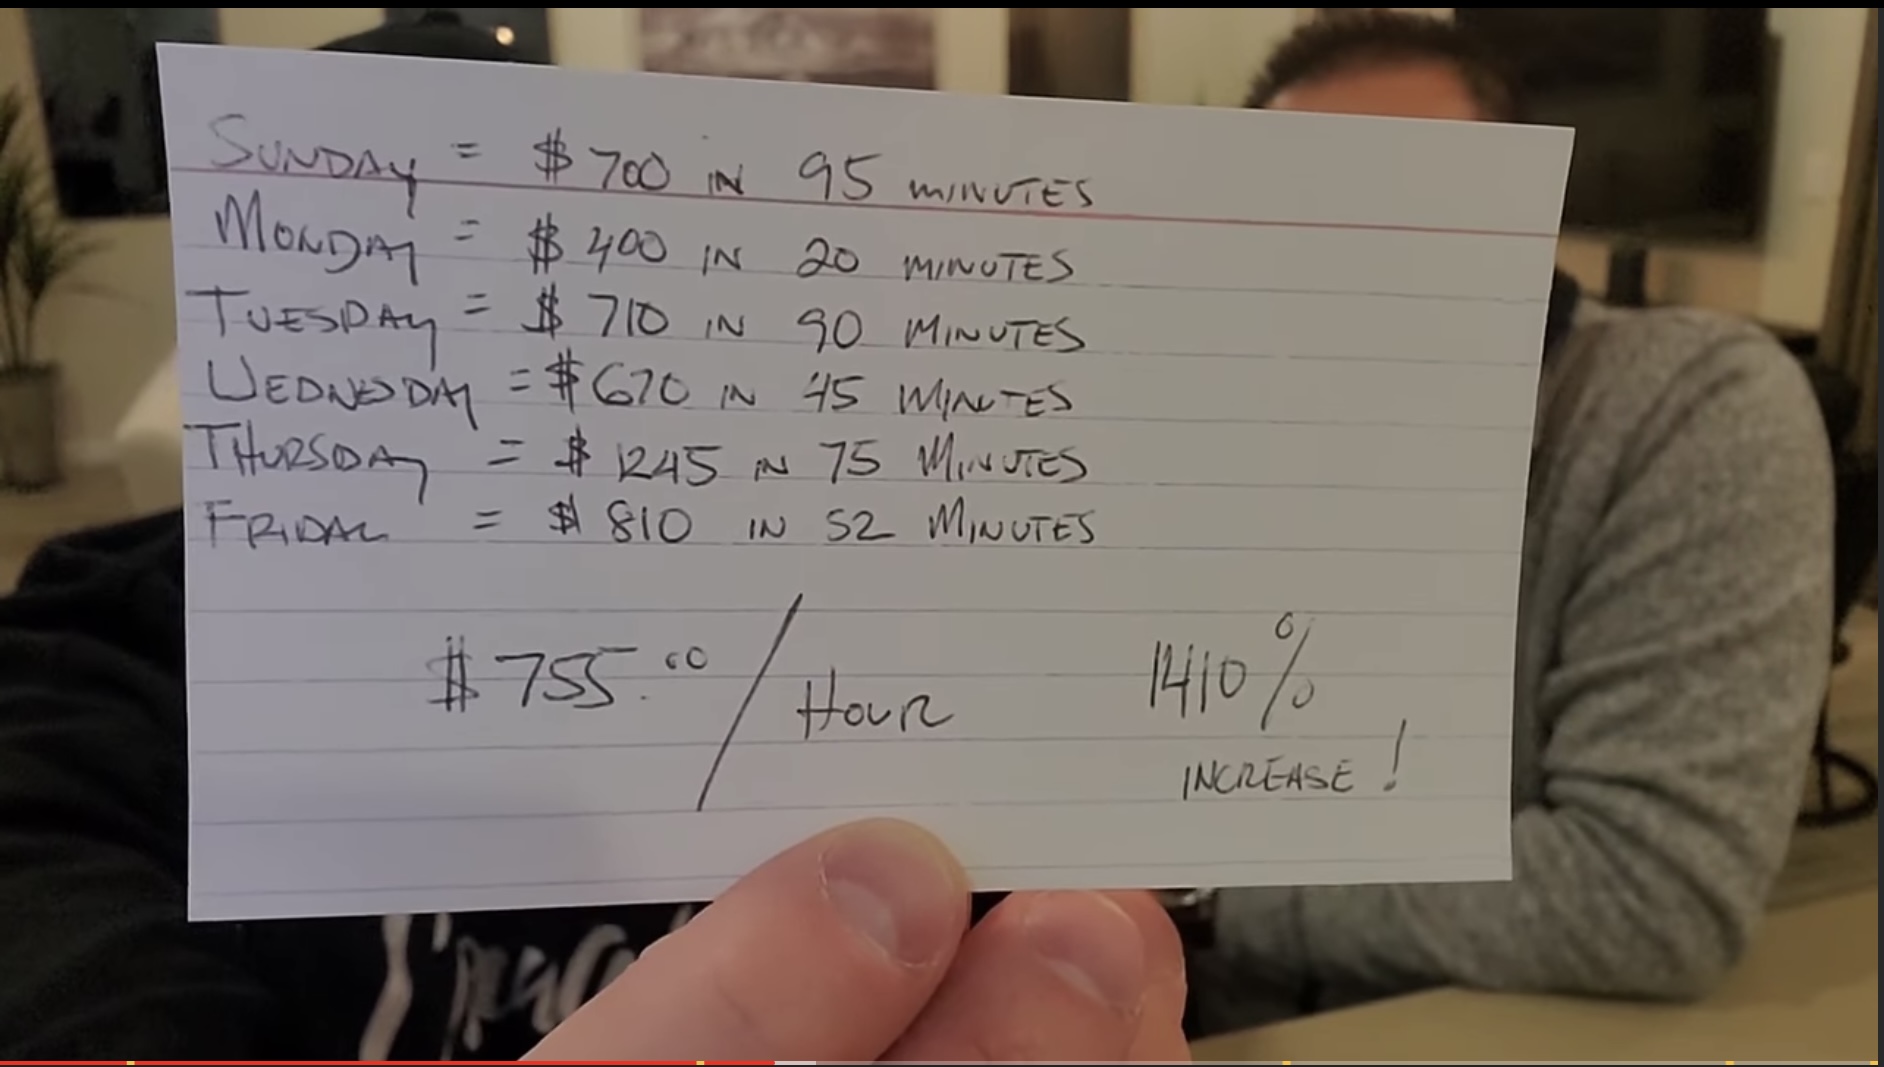 SUNDAY = $700 IN 95 MINUTES
MONDAY = $400 IN 20 MINUTES
TUESDAY = $710 IN 90 MINUTES
WEDNESDAY = $670 IN 45 MINUTES
THURSDAY = $1245 IN 75 MINUTES
FRIDAY = $810 IN 52 MINUTES
$755.00 / HOUR
1410%
INCREASE!